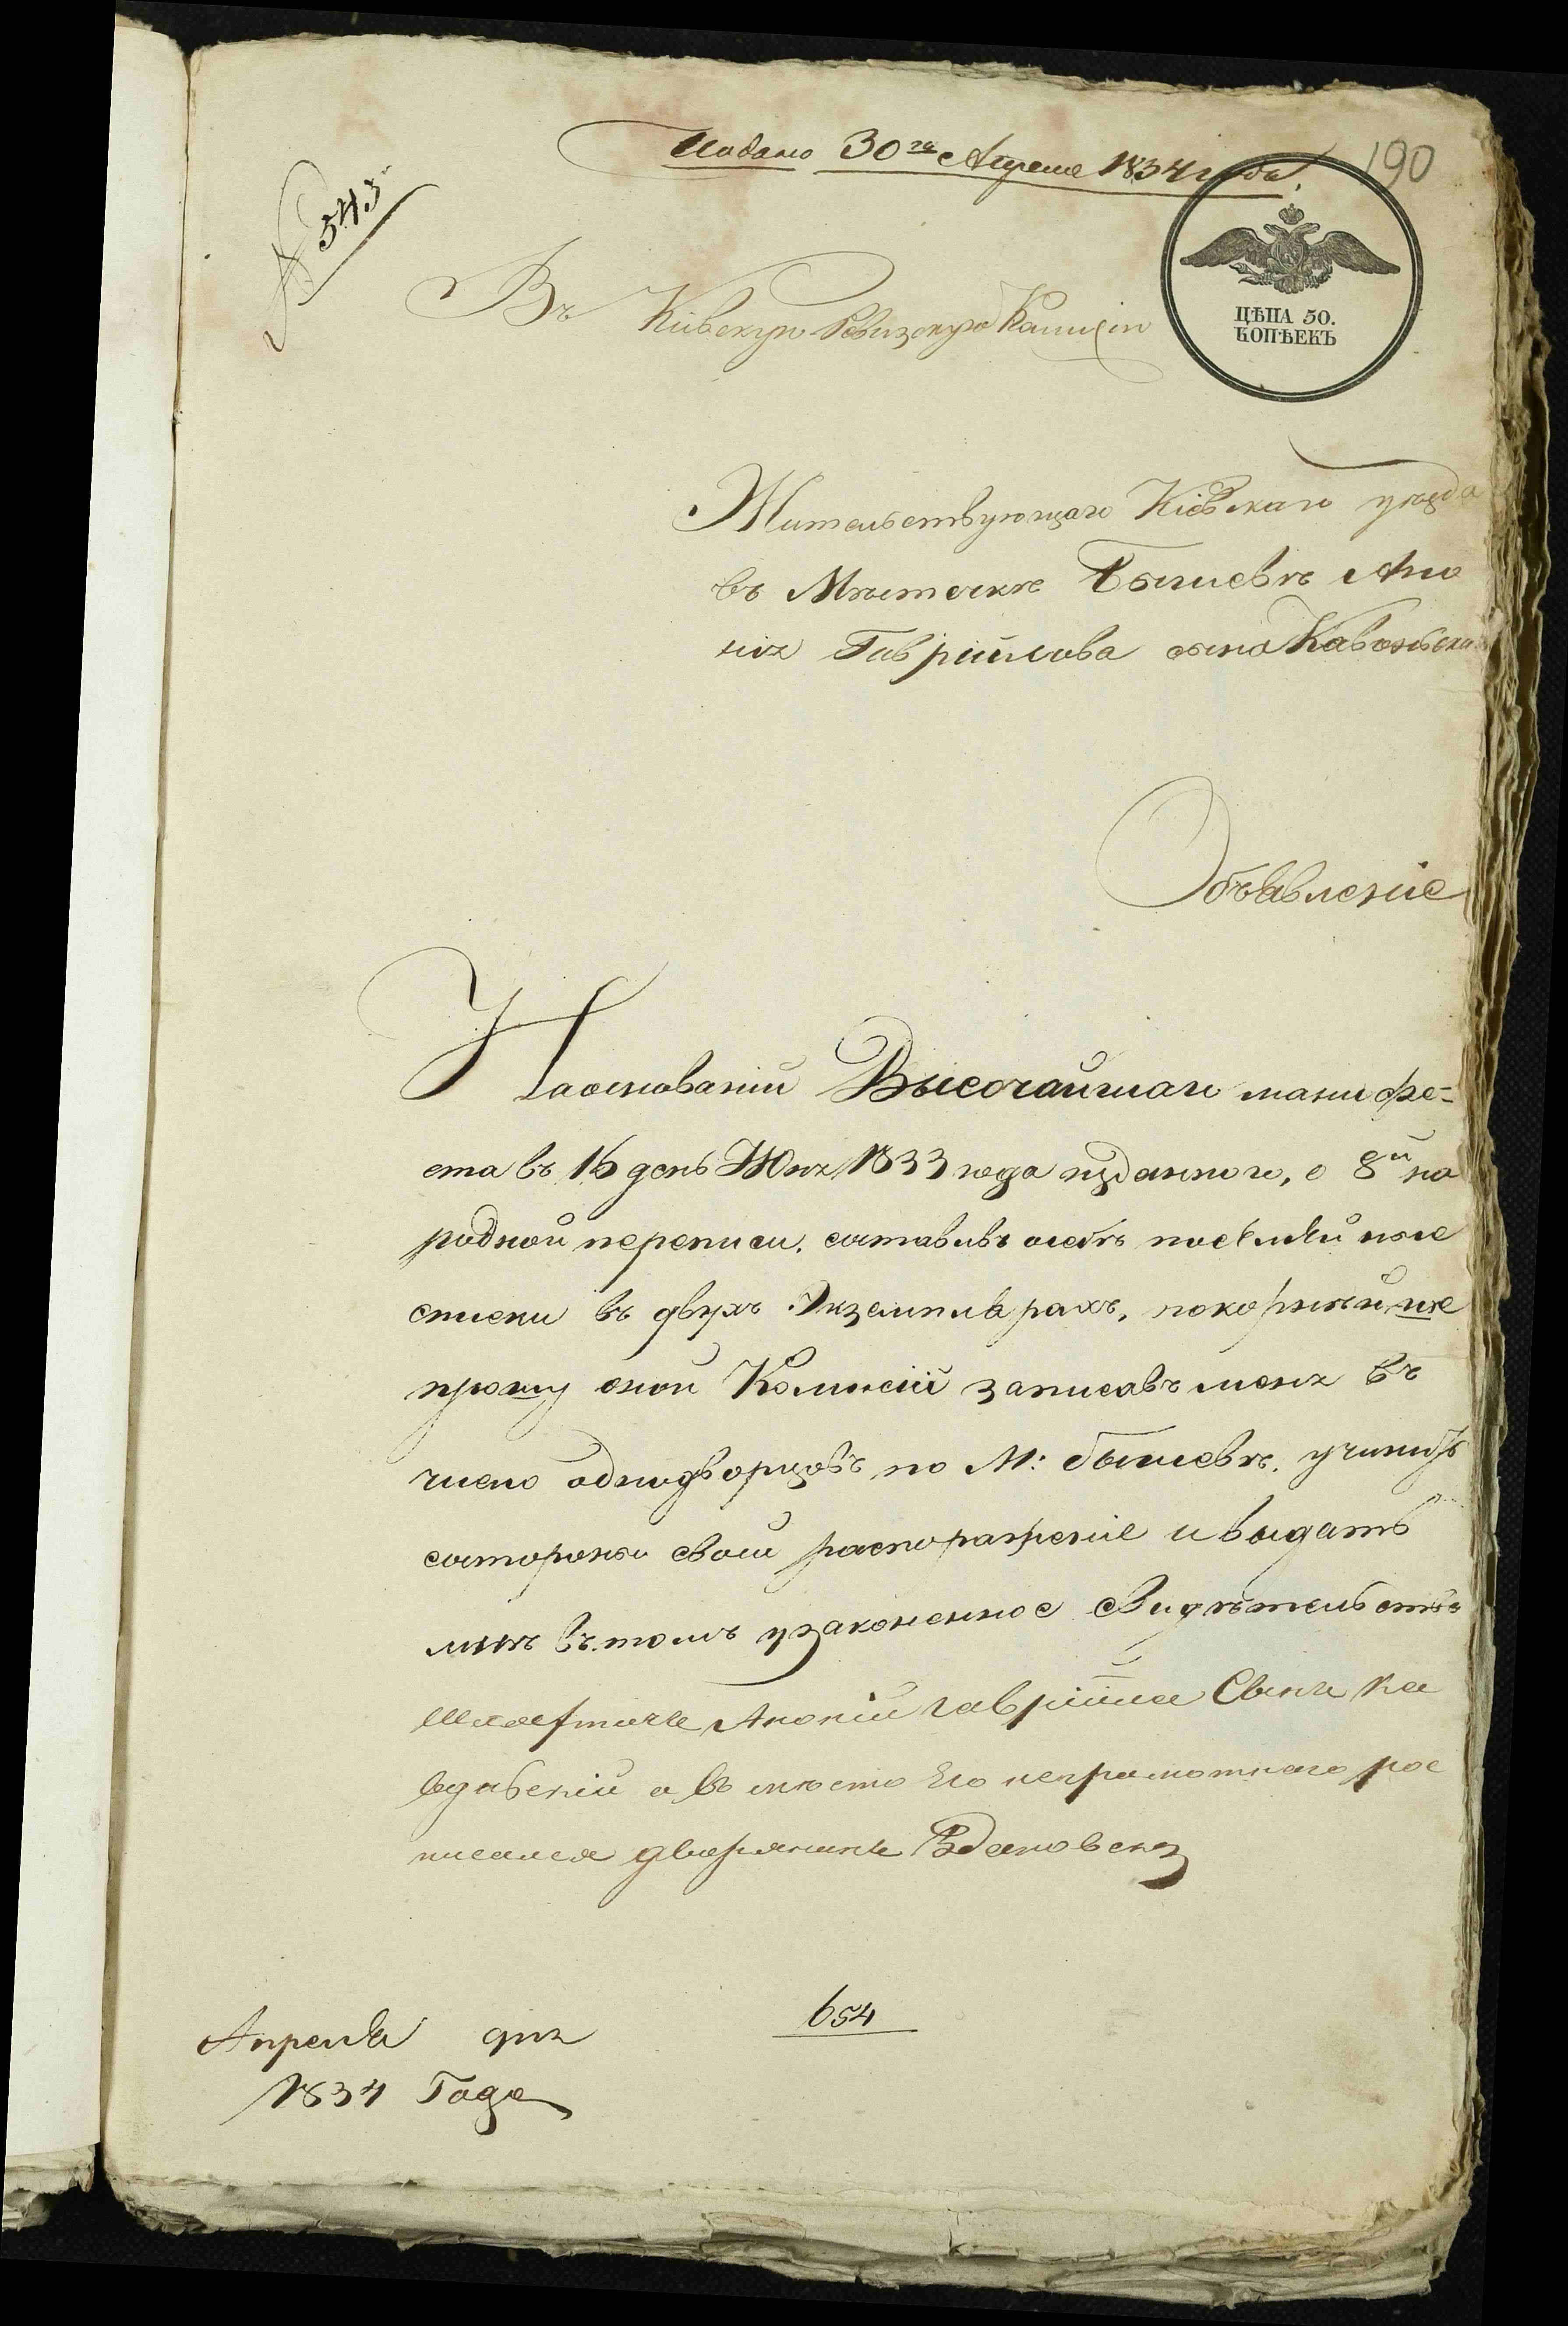 Подано 30го Апреля 1834 года.
190
№ 543
ЦѢНА 50.
КОПѢЕКЪ
Въ Кіевскую Ревизскую Комисію
Жительствующаго Кіевскаго уезда
въ Мѣстечкѣ Бышевѣ Ано
нія Гавріилова сына
Объявленіе
На основаніи Высочайшаго манифе-
ста въ 16 день Июня 1833 года изданного, о 8й на
родной переписи. составивъ о себѣ
списки въ двухъ Экземплярахъ, покорнѣйше
прошу оной Комисіи записавъ меня въ
число однодворцовъ по М: Бышевѣ. учинить
состороны своей распоряженіе и выдать
мнѣ въ томъ узаконенное Свидѣтельство
Шляхтичъ Аноній Гавріила Сынъ Ка
а въ мѣсто Его неграмотного рос
писался дворянинъ
654
Апреля дня
1834 Года